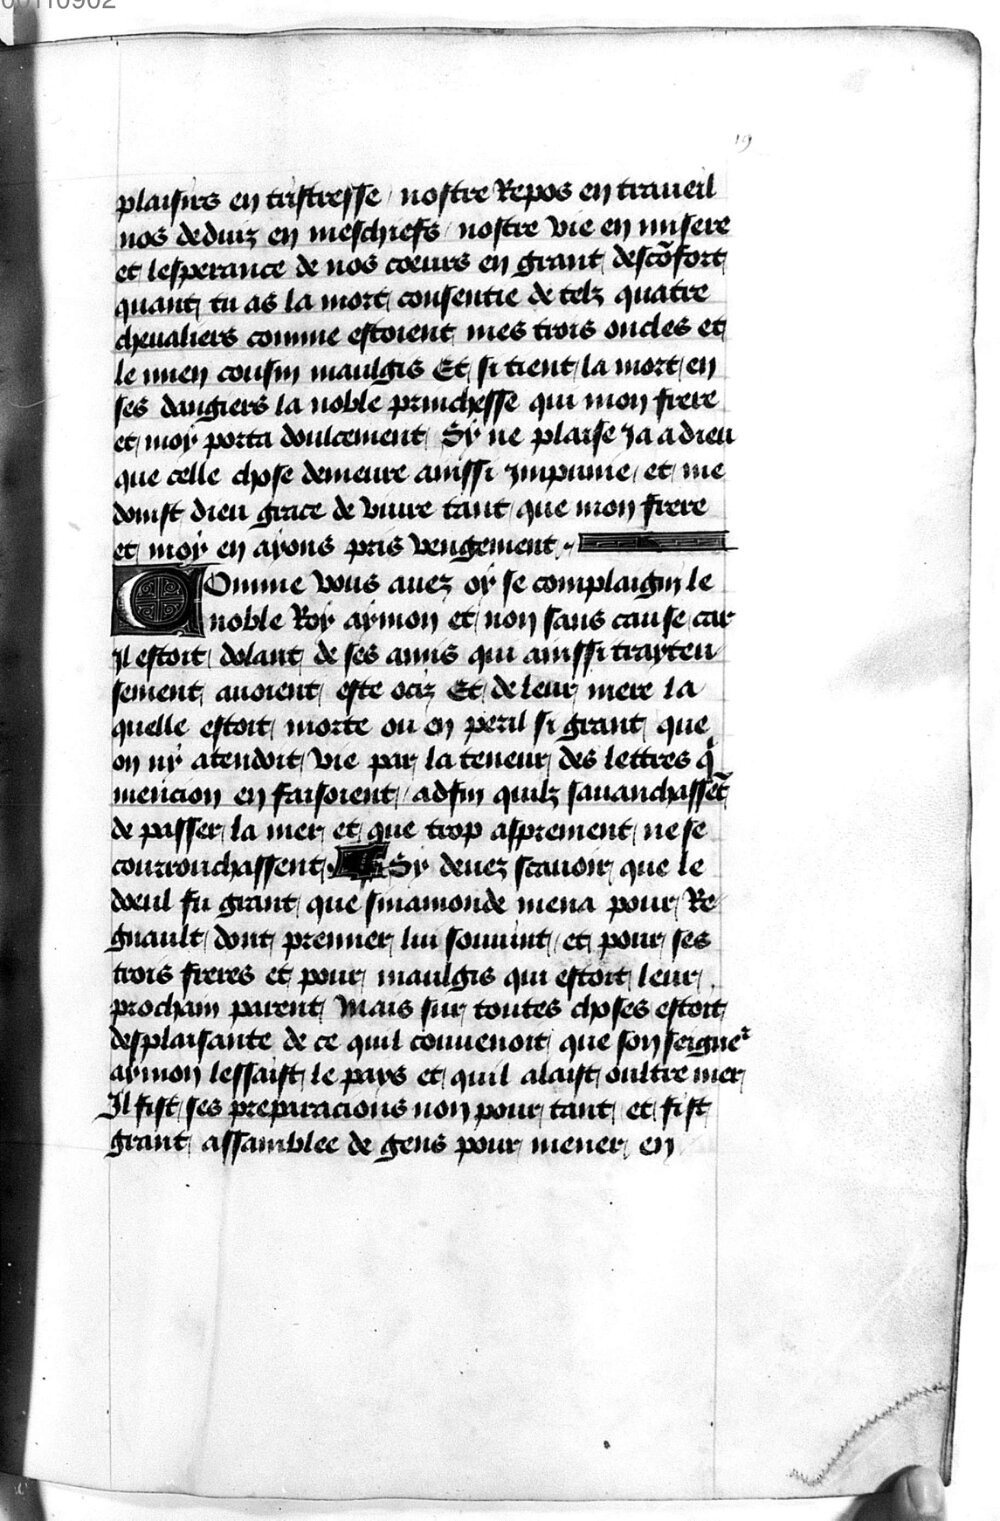 00110902
19
plaisirs en tristresse / nostre Repos en traueil
nos deduiz en meschiefs / nostre vie en misere
et lesperance de nos coeurs en grant descōfort
quant tu as la mort consentie de telz quatre
cheualiers comme estoient mes trois oncles et
le mien cousin maulgis Et si tient la mort en
ses dangiers la noble princhesse qui mon frere
et moy porta doulcement Sy ne plaise ja a dieu
que celle chose demeure ainssi jmpunie / et me
doinst dieu grace de viure tant que mon frere
et moy en ayons pris vengement .
Comme vous auez oy se complaigni le
noble Roy aymon et non sans cause car
jl estoit dolant de ses amis qui ainssi trayteu
sement auoient este ociz Et de leur mere la
quelle estoit morte ou en peril si grant que
on ny atendoit vie par la teneur des lettres q̄
mencion en faisoient / adfin quilz sauanchassēt
de passer la mer et que trop asprement ne se
courrouchassent . Sy deuez scauoir que le
doeul fu grant que sinamonde mena pour Re
gnault dont premier lui souuint et pour ses
trois freres et pour maulgis qui estoit leur
prochain parent Mais sur toutes choses estoit
desplaisante de ce quil conuenoit que son seigneᵣ
aymon lessaist le pays et quil alaist oultre mer
Jl fist ses preparacions non pour tant et fist
grant assamblee de gens pour mener en